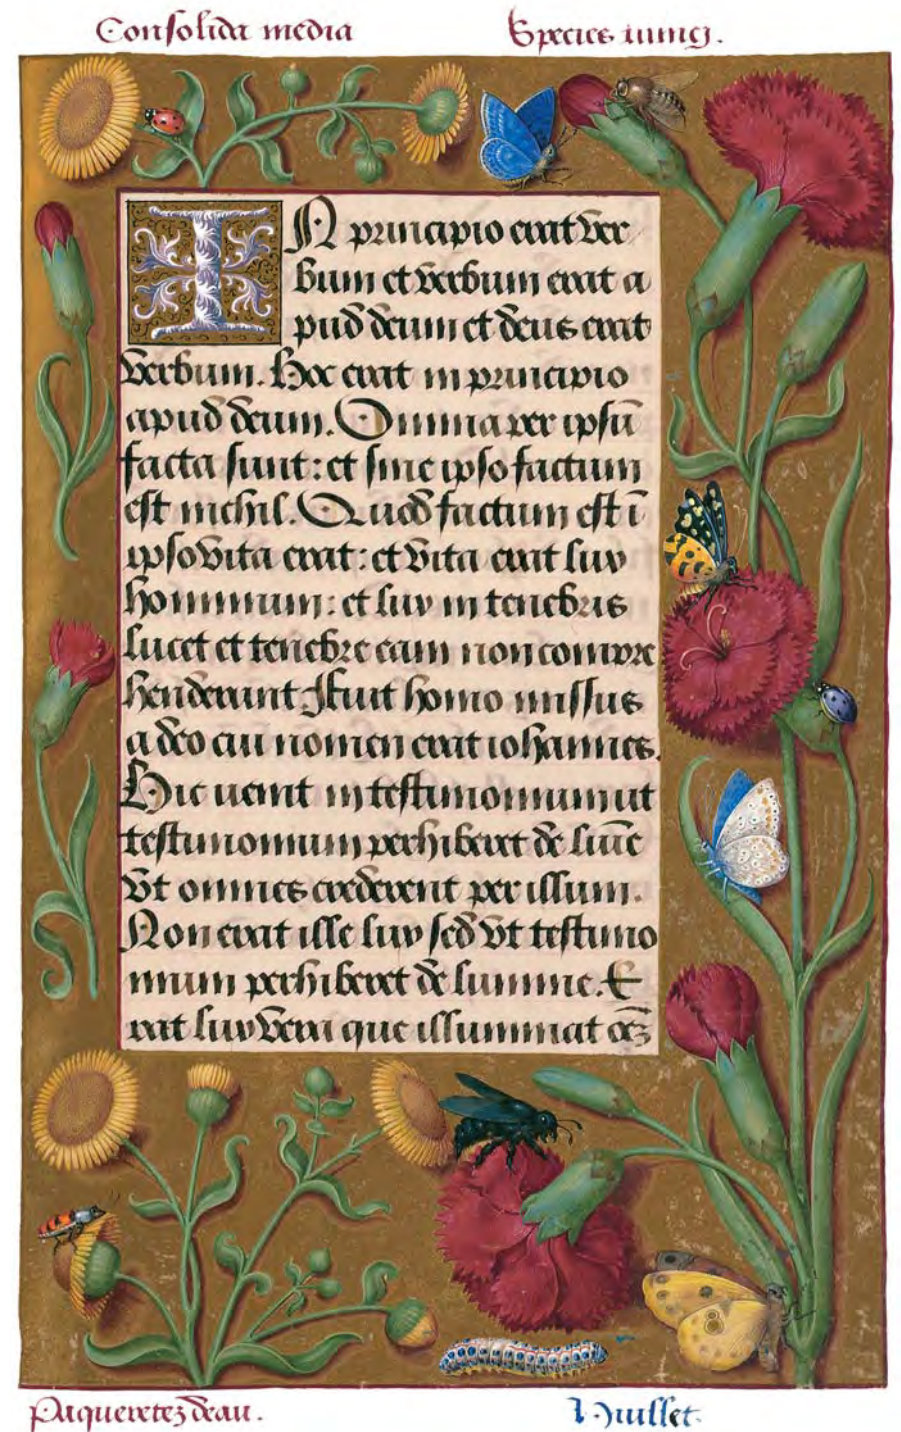 Consolida media
Species iungi.
IN principio erat ver
bum et verbum erat a
pud deum et deus erat
verbum. Hoc erat in principio
apud deum. Omnia per ipsū
facta sunt: et sine ipso factum
est nichil. Quod factum est ī
ipso vita erat: et vita erat lux
hominum: et lux in tenebris
lucet et tenebre eam non compre
henderunt Fuit homo missus
a deo cui nomen erat iohannes.
Hic uenit in testimonium ut
testimonium perhiberet de lumīe
vt omnes crederent per illum.
Non erat ille lux sed vt testimo
nium perhiberet de lumine. E
rat lux vera que illuminat oēz
Paqueretez deau.
Huillet.